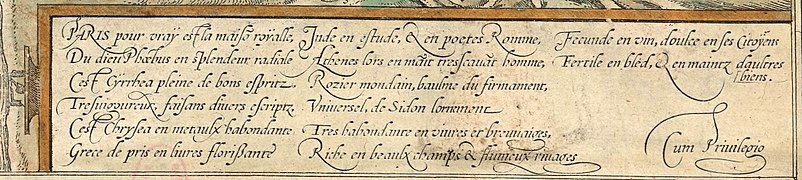 PARIS pour vraÿ est la maisō royalle,
Du dieu Phœbus en splendeur radiale
C'est Cÿrrhea pleine de bons espritz,
Tresuigoureux, faisans diuers escriptz
C'est Chrysea en metaulx habondante
Grece de pris en liures florißante
Inde en estude, & en poetes Romme,
Athenes lors en maīt tresscauāt homme,
Rozier mondain, baulme du firmament,
Vniuersel, de Sidon l'ornement
Tres habondante en viures et breuuaiges,
Riche en beaulx champs & fluuieux riuages
Fecunde en vin, doulce en ses Citoÿens
Fertile en bled, & en maintz d'aultres
biens.
Cum Priuilegio